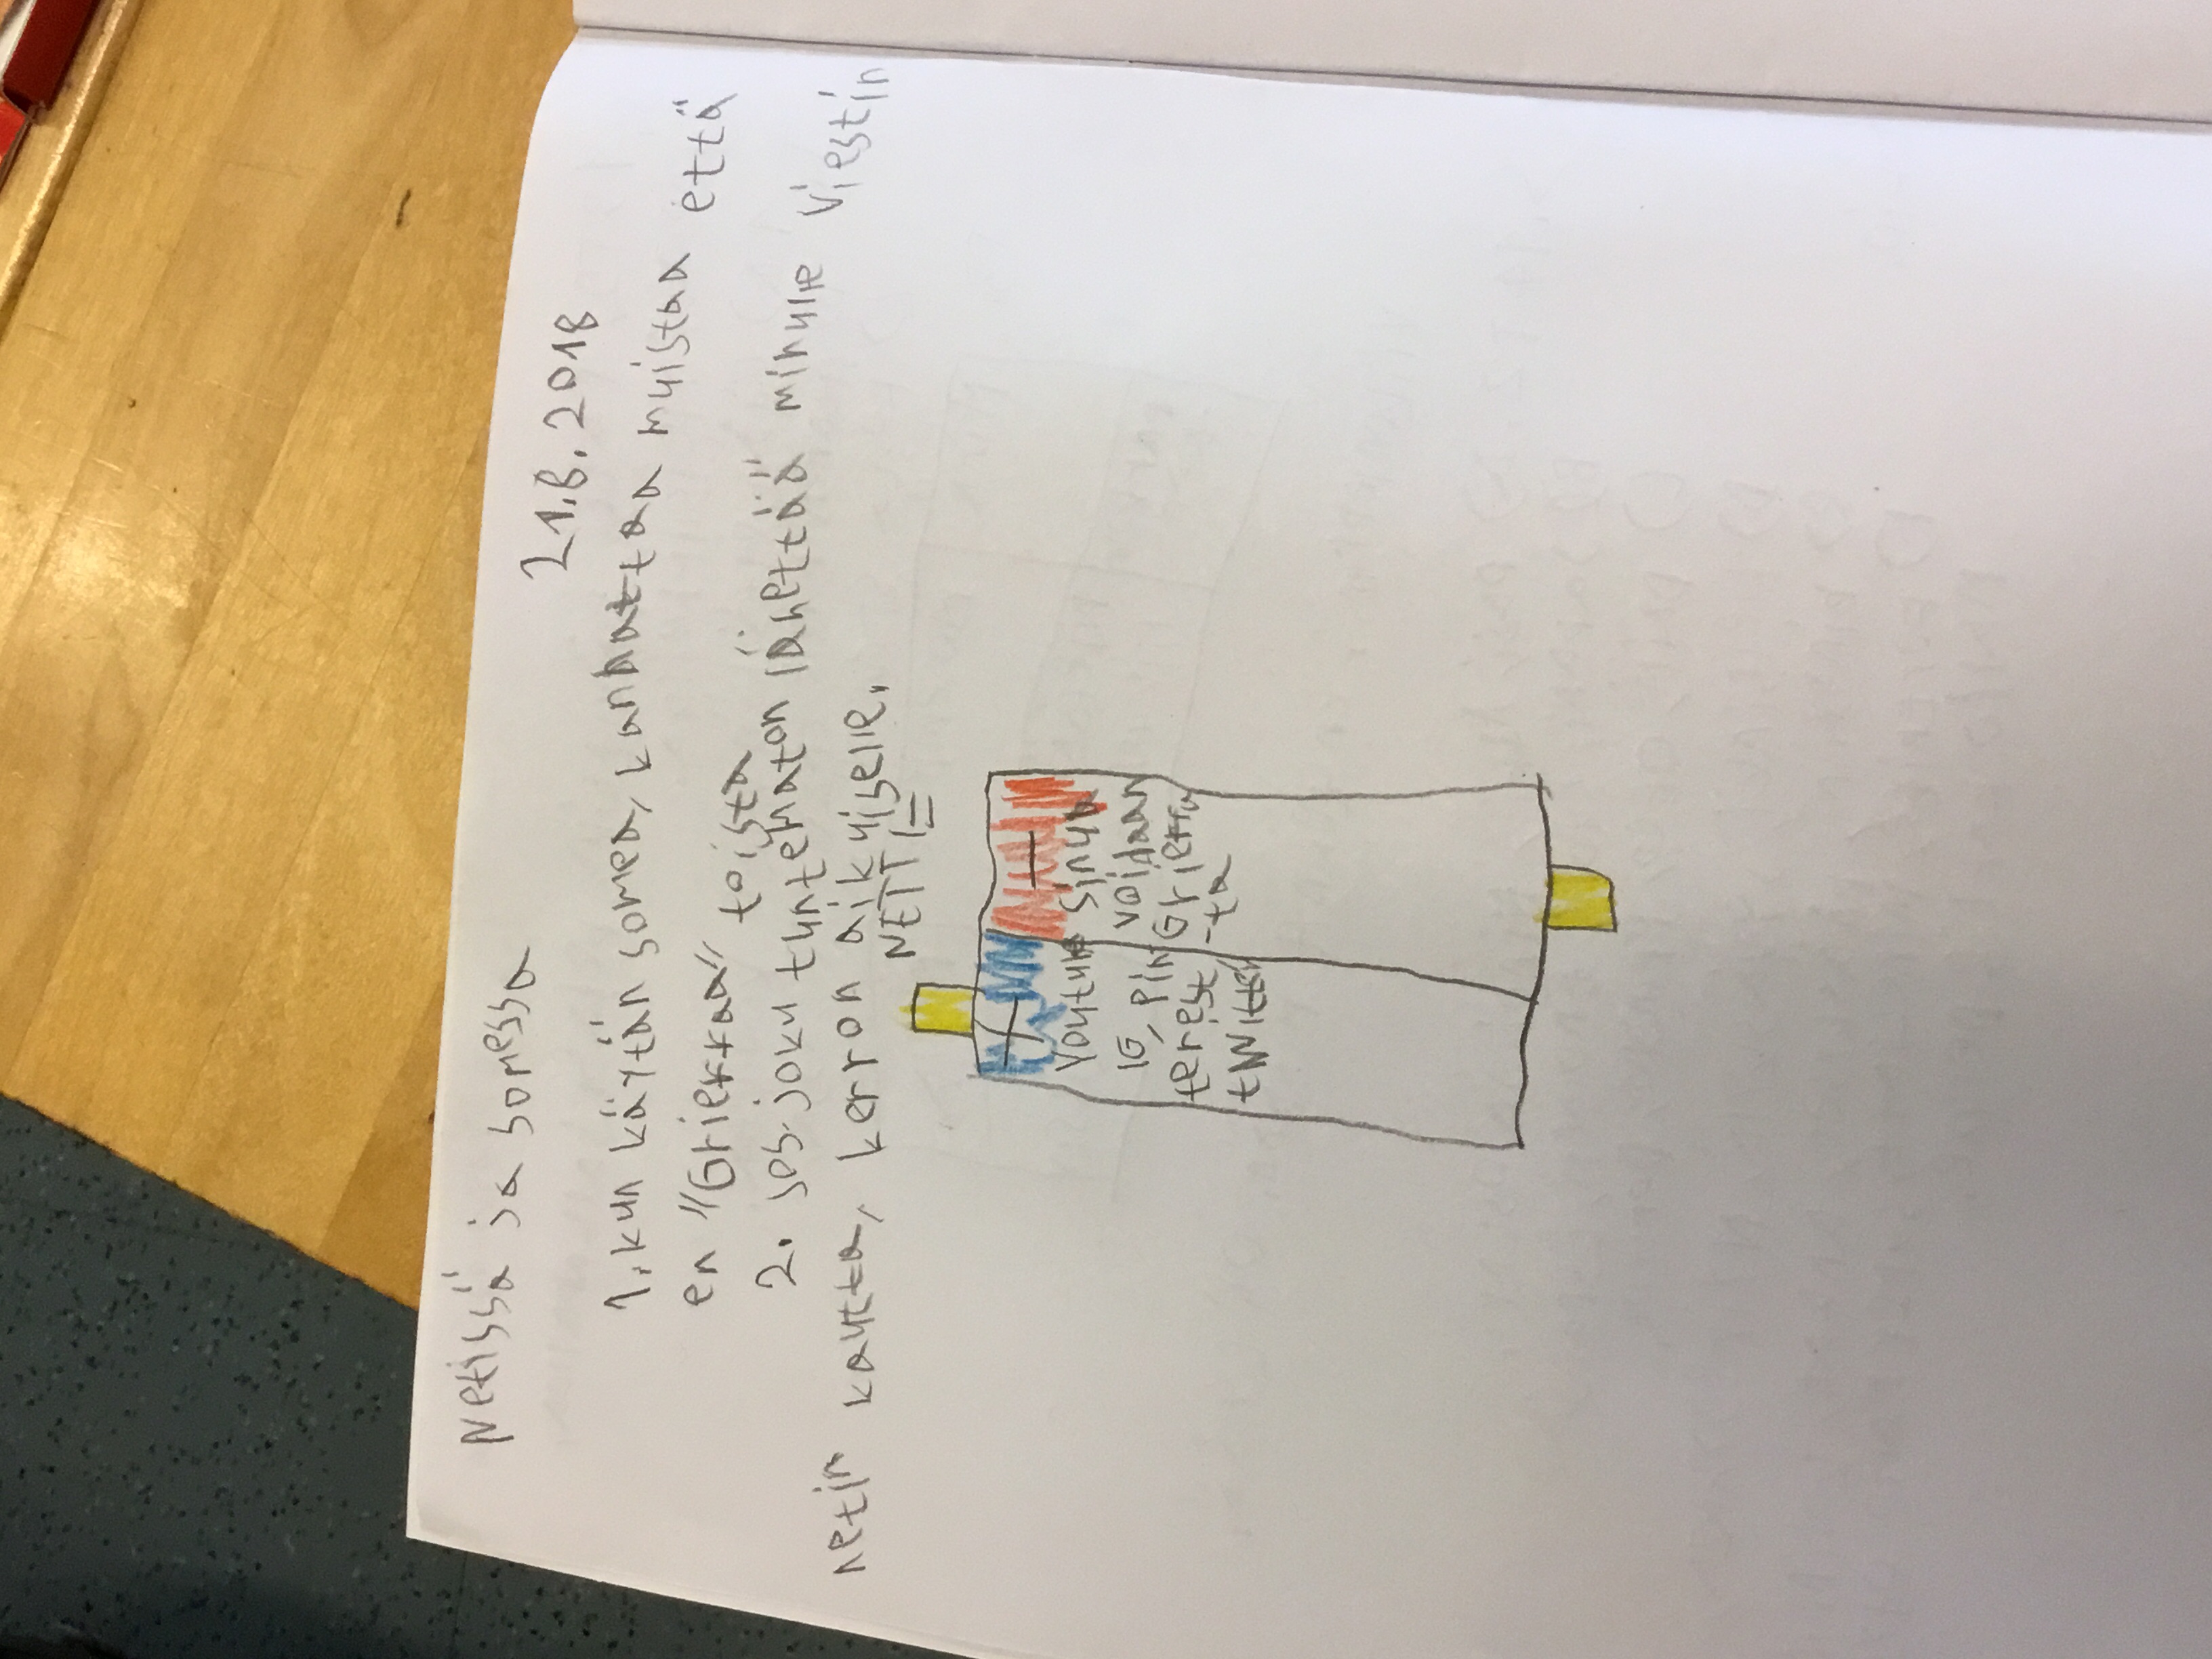 Netissä ja somessa
21.8.2018
1. kun käytän somea, kanhattaa muistaa että
en "Griekkaa" toista
2. Jos joku tuntematon lähettää minule viestin
netin kautta, kerron aikuiselle.
NETTI
+
-
Youtube
IG, Pin
terest
tWitter
Sinua
voidaan
Griekka
-ta